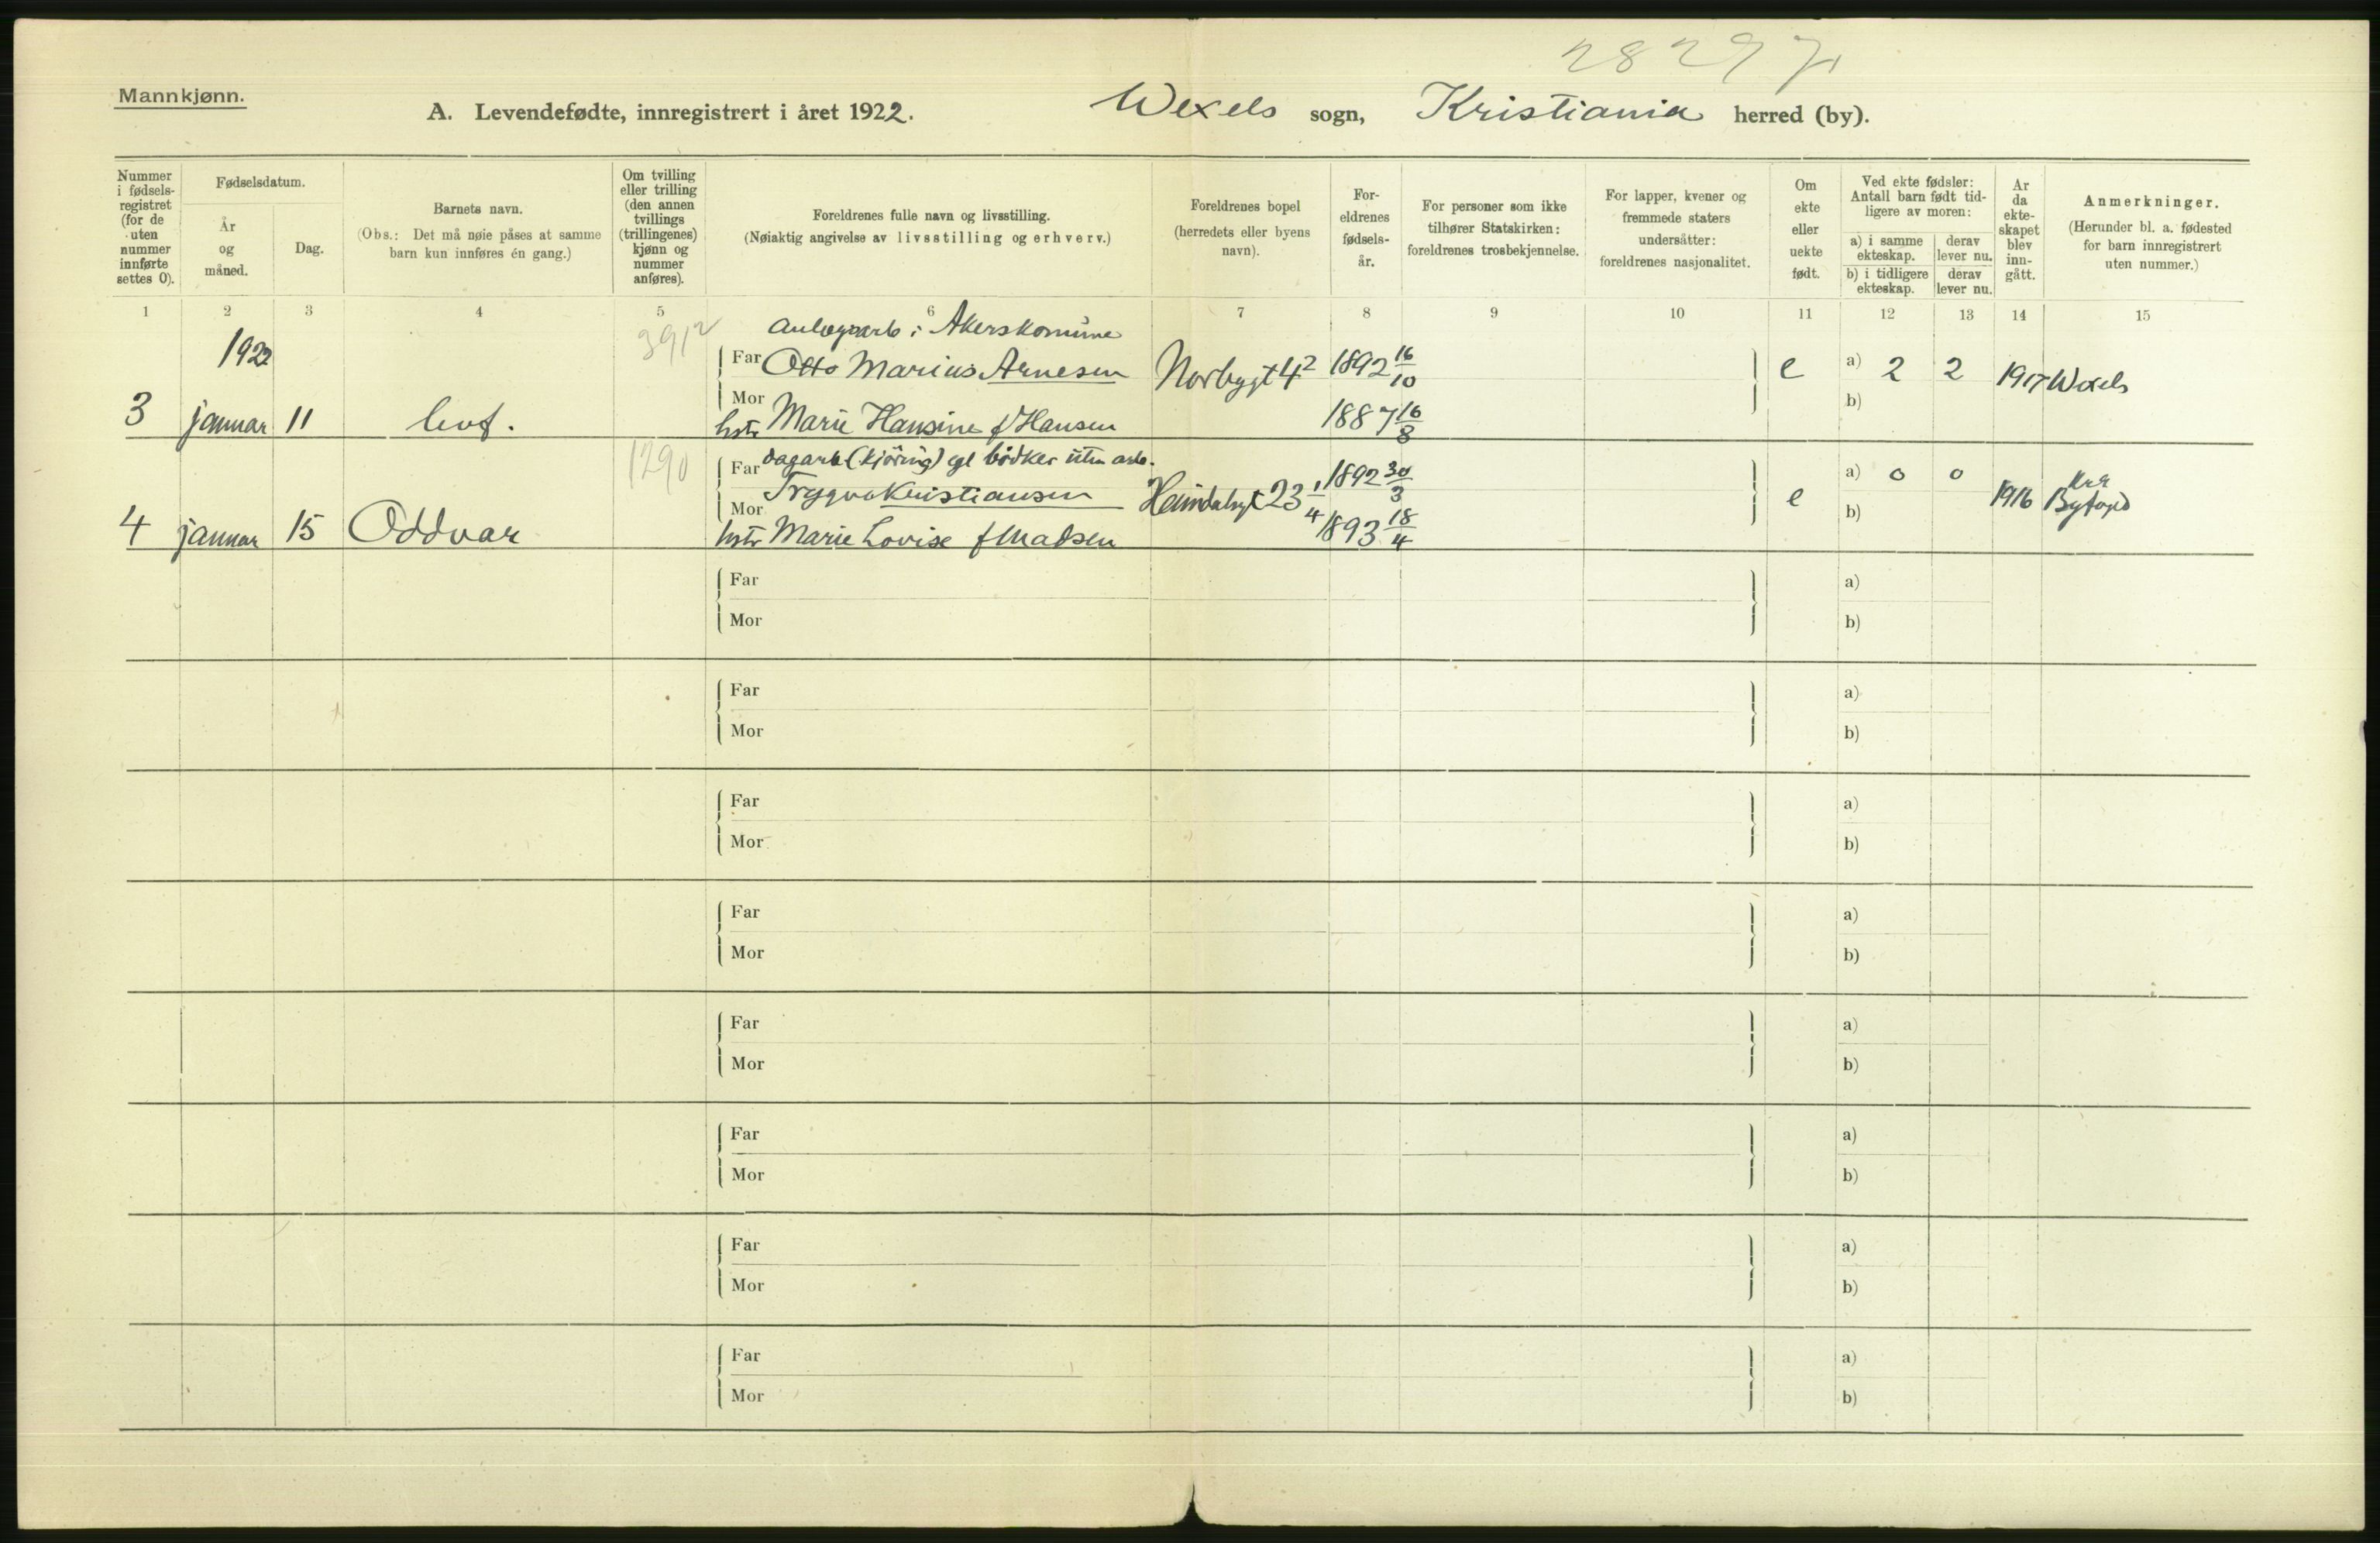 28297
Mannkjønn.
A. Levendefødte, innregistrert i året 1922. Wexels sogn, Kristiania herred (by).
Nummer i fødsels-registret (for de uten nummer innførte settes 0).
Fødselsdatum.
År og måned.
Dag.
Barnets navn.
(Obs.: Det må nøie påses at samme barn kun innføres én gang.)
Om tvilling eller trilling (den annen tvillings (trillingenes) kjønn og nummer anføres).
Foreldrenes fulle navn og livsstilling.
(Nøiaktig angivelse av livsstilling og erhverv.)
Foreldrenes bopel (herredets eller byens navn).
For-eldrenes fødsels-år.
For personer som ikke tilhører Statskirken: foreldrenes trosbekjennelse.
For lapper, kvener og fremmede staters undersåtter: foreldrenes nasjonalitet.
Om ekte eller uekte født.
Ved ekte fødsler: Antall barn født tid-ligere av moren:
a) i samme ekteskap.
derav lever nu.
b) i tidligere ekteskap.
derav lever nu.
År da ekte-skapet blev inn-gått.
Anmerkninger.
(Herunder bl. a. fødested for barn innregistrert uten nummer.)
1 2 3 4 5 6 7 8 9 10 11 12 13 14 15
1922 3912 i Akerskomune
Far Otto Marius Arnesen Norbygt 42 1892 16/10 e a) 2 2 1917 Wexels
Mor b)
3 januar 11 hstr Marie Hansine f Hansen 1887 16/8
1290 Far dagarb (kjöring) egl bödker uten arb.
Trygve Kristiansen Heimdalsgt 23 1/4 1892 30/3 e a) 0 0 1916 Kra Byfogd
Mor b)
4 januar 15 Oddvar hstr Marie Lovise f Madsen 1893 18/4
Far a)
Mor b)
Far a)
Mor b)
Far a)
Mor b)
Far a)
Mor b)
Far a)
Mor b)
Far a)
Mor b)
Far a)
Mor b)
Far a)
Mor b)